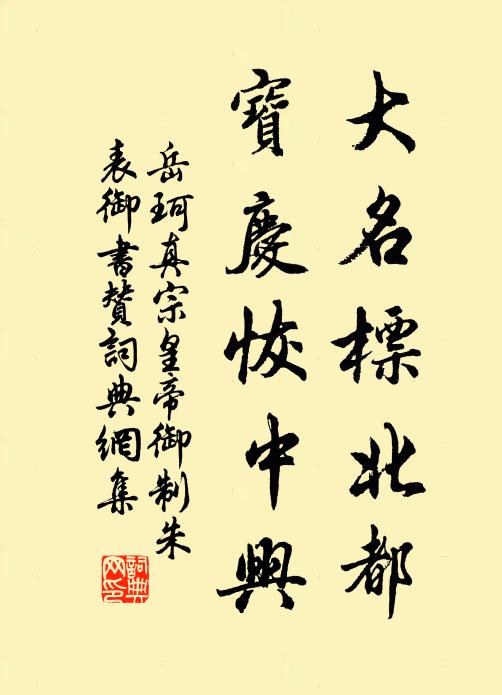 大名標北都
寶慶恢中興
岳珂真宗皇帝御制朱
表御書贊詞典網集
詞典网印